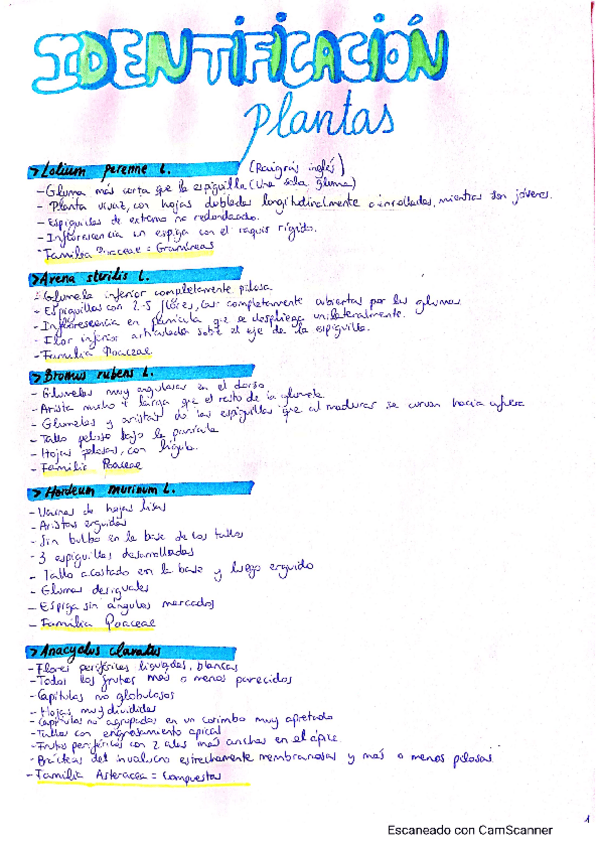 IDENTIFICACIÓN
plantas
> Lolium perenne L. (Raigrás inglés)
- Gluma más corta que la espiguilla (Una sola gluma)
- Planta vivaz, con hojas dobladas longitudinalmente o enrolladas, mientras son jóvenes.
- Espiguillas de extremo no redondeado.
- Inflorescencia en espiga con el raquis rígido.
- Familia Poaceae = Gramíneas
> Avena sterilis L.
- Glumela inferior completamente pilosa.
- Espiguillas con 2-5 flores, completamente cubiertas por las glumas
- Inflorescencia en panícula que se despliega unilateralmente.
- Flor inferior articulada sobre el eje de la espiguilla.
- Familia Poaceae
> Bromus rubens L.
- Glumelas muy angulosas en el dorso
- Arista mucho + larga que el resto de la glumela
- Glumelas y aristas de las espiguillas que al madurar se curvan hacia afuera
- Tallo peloso bajo la panícula
- Hojas pelosas, con lígula.
- Familia Poaceae
> Hordeum murinum L.
- Vainas de hojas lisas
- Aristas erguidas
- Sin bulbo en la base de los tallos
- 3 espiguillas desarrolladas
- Tallo acostado en la base y luego erguido
- Glumas desiguales
- Espiga sin ángulos marcados
- Familia Poaceae
> Anacyclus clavatus
- Flores periféricas liguladas, blancas
- Todos los frutos más o menos parecidos
- Capítulos no globulosos
- Hojas muy divididas
- Capítulos no agrupados en un corimbo muy apretado
- Tallos con engrosamiento apical
- Frutos periféricos con 2 alas más anchas en el ápice.
- Brácteas del involucro estrechamente membranosas y más o menos pelosas
- Familia Asteracea = Compuestas
1
Escaneado con CamScanner